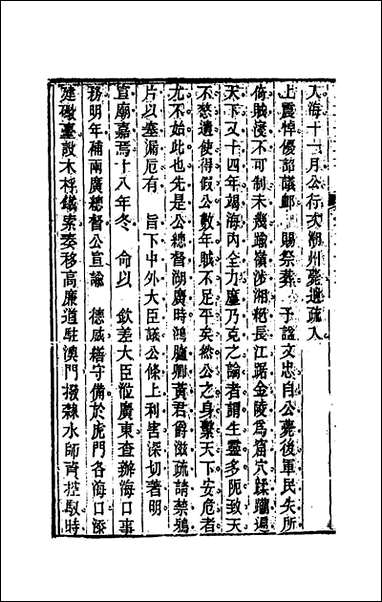 入海十一月公行次潮州薨遺疏入
上震悼優詔議卹 賜祭葬 予謚文忠自公薨後軍民失所
倚賊寖不可制未幾踰嶺涉湘絕長江踞金陵爲窟穴蹂躪遍
天下又十四年竭海內全力廑乃克之論者謂生靈多阨致天
不憖遺使得假公數年賊不足平矣然公之身繫天下安危者
尤不始此也先是公總督湖廣時鴻臚卿黃君爵滋疏請禁鴉
片以塞漏卮有 旨下中外大臣議公條上利害深切著明
宣廟嘉焉十八年冬 命以 欽差大臣涖廣東查辦海口事
務明年補兩廣總督公宣諭 德威繕守備於虎門各海口添
建礮臺設木桴鐵索奏移高廉道駐澳門撥隸水師資控馭時